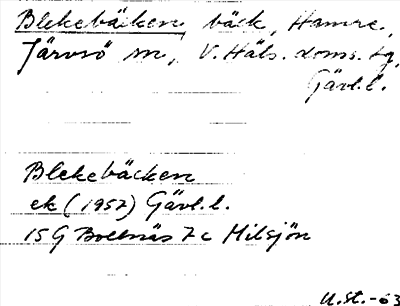 Blekebäcken, bäck, Hamre,
Järvsö sn, V. Häls. doms. tg,
Gävl.l.
Blekebäcken
ek (1957) Gävl.l.
15G Bollnäs 7c Hilsjön
U.St.-63